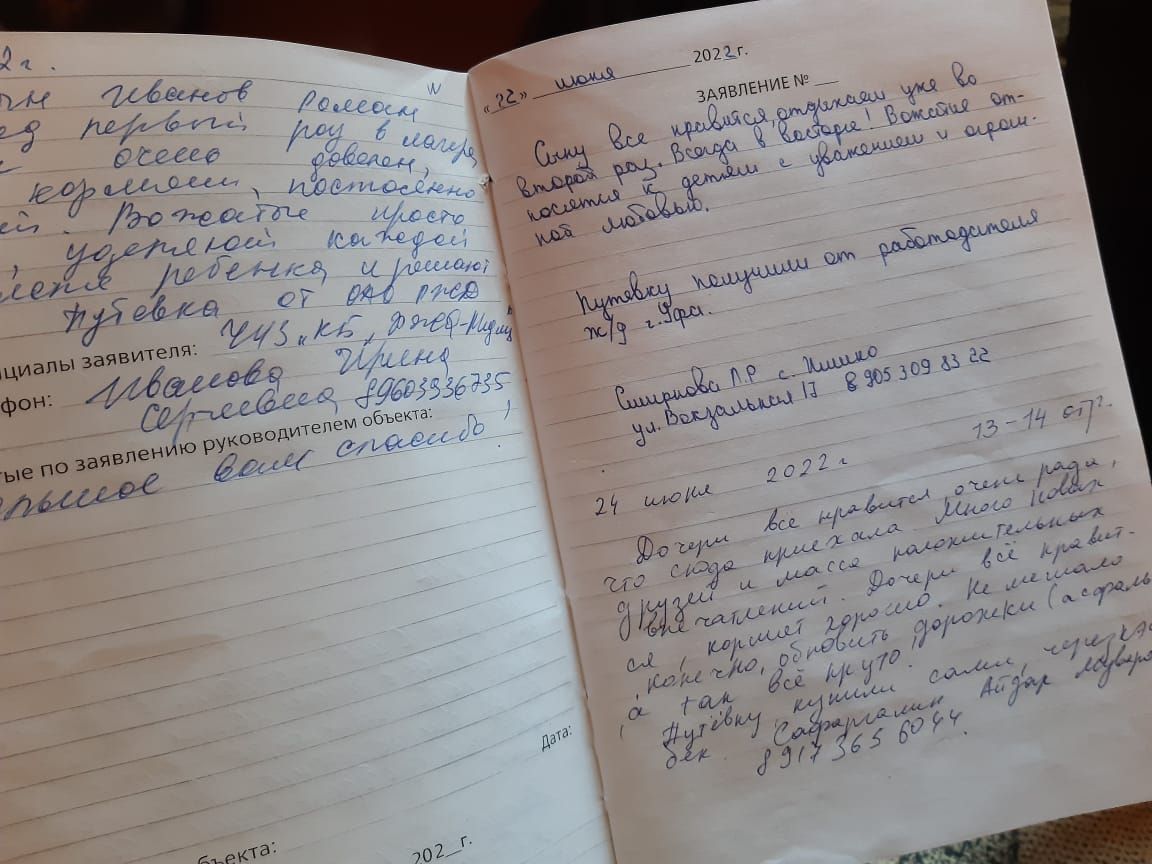 2 г.
Иванов Роман
первый раз в лагере
очень доволен,
кормят, постоянно
Вожатые просто
, уделяют каждой
ребенка, и решают
Путёвка от ОАО РЖД
циалы заявителя: ЧУЗ „КБ „РЖД-Мед"
фон: Иванова Ирина
Сергеевна 89603936735
тые по заявлению руководителем объекта:
вам спасибо!
Дата:
бъекта: 202_г.
„22" июня 2022г.
ЗАЯВЛЕНИЕ №
Сыну все нравится, отдыхаем уже во
второй раз. Всегда в восторге! Вожатые от-
носятся к детям с уважением и огром-
ной любовью.
Путевку получили от работодателя
ж/д г. Уфа.
Смирнова Л.Р с.
ул. Вокзальная 17 8 905 309 83 22
13-14 отр.
24 июня 2022 г
Дочери всё нравится, очень рада,
что сюда приехала. Много новых
друзей и масса положительных
впечатлений. Дочери всё нравит-
ся, кормят хорошо. Не мешало
, конечно, обновить дорожки (асфаль
, а так всё круто.
Путёвку купили сами, через
бек. Айдар
8 917 365 6044.